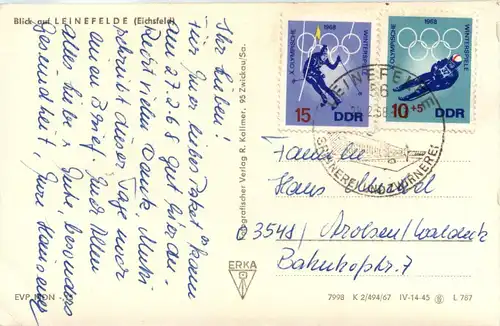 Blick auf LEINEFELDE (Eichsfeld)
Ihr Lieben!
Für Euer liebes Paket kam
am 27.2.68 gut hier an.
Recht vielen Dank, Mutti
schreibt dieser Tage noch
einen Brief. Euch Allen
alles Liebe u. Gute, besonders
Gesundheit, Eure
Fotografischer Verlag R. Kallmer, 95 Zwickau/Sa.
1968
X. OLYMPISCHE
WINTERSPIELE
15
DDR
1968
X. OLYMPISCHE
WINTERSPIELE
10+5
DDR
LEINEFELDE
SPINNEREI UND ZWIRNEREI
Familie
Hans
03548 / Arolsen / Waldeck
Bahnhofstr. 7
ERKA
EVP MDN
7998 K 2/494/67 IV-14-45 L 787